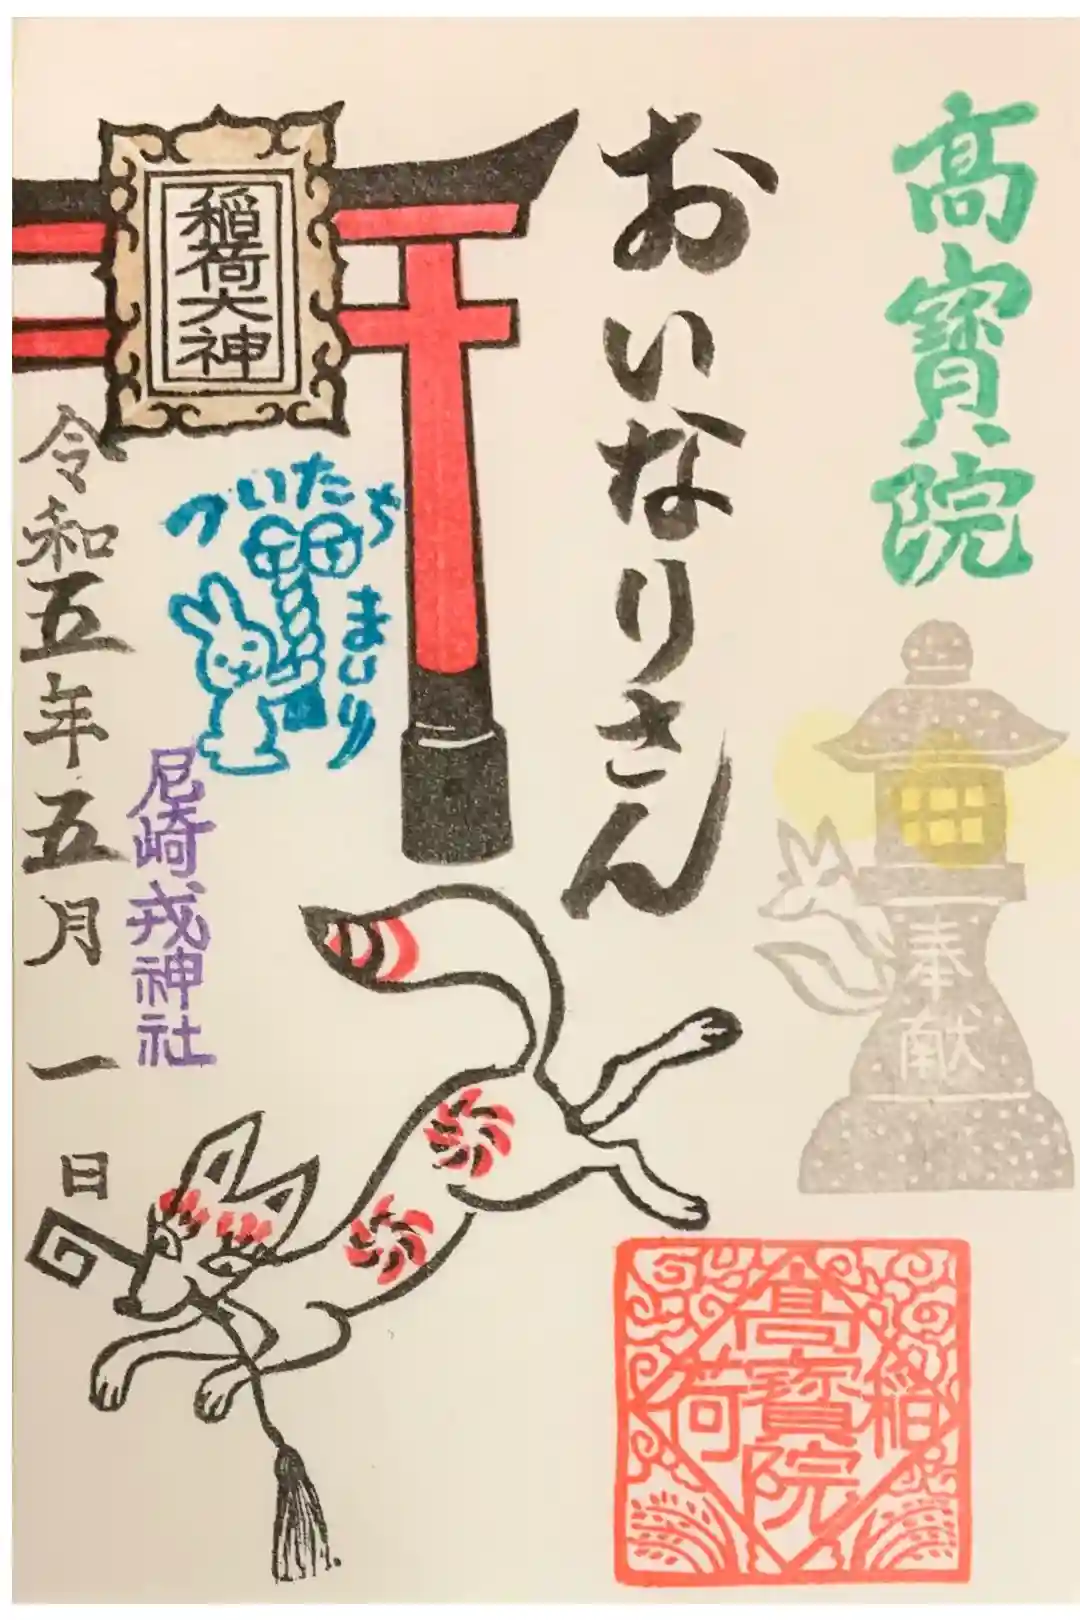 高寳院
おいなりさん
稲荷大神
ついたち
まいり
尼崎戎神社
令和五年五月一日
奉献
稲荷
高寳院